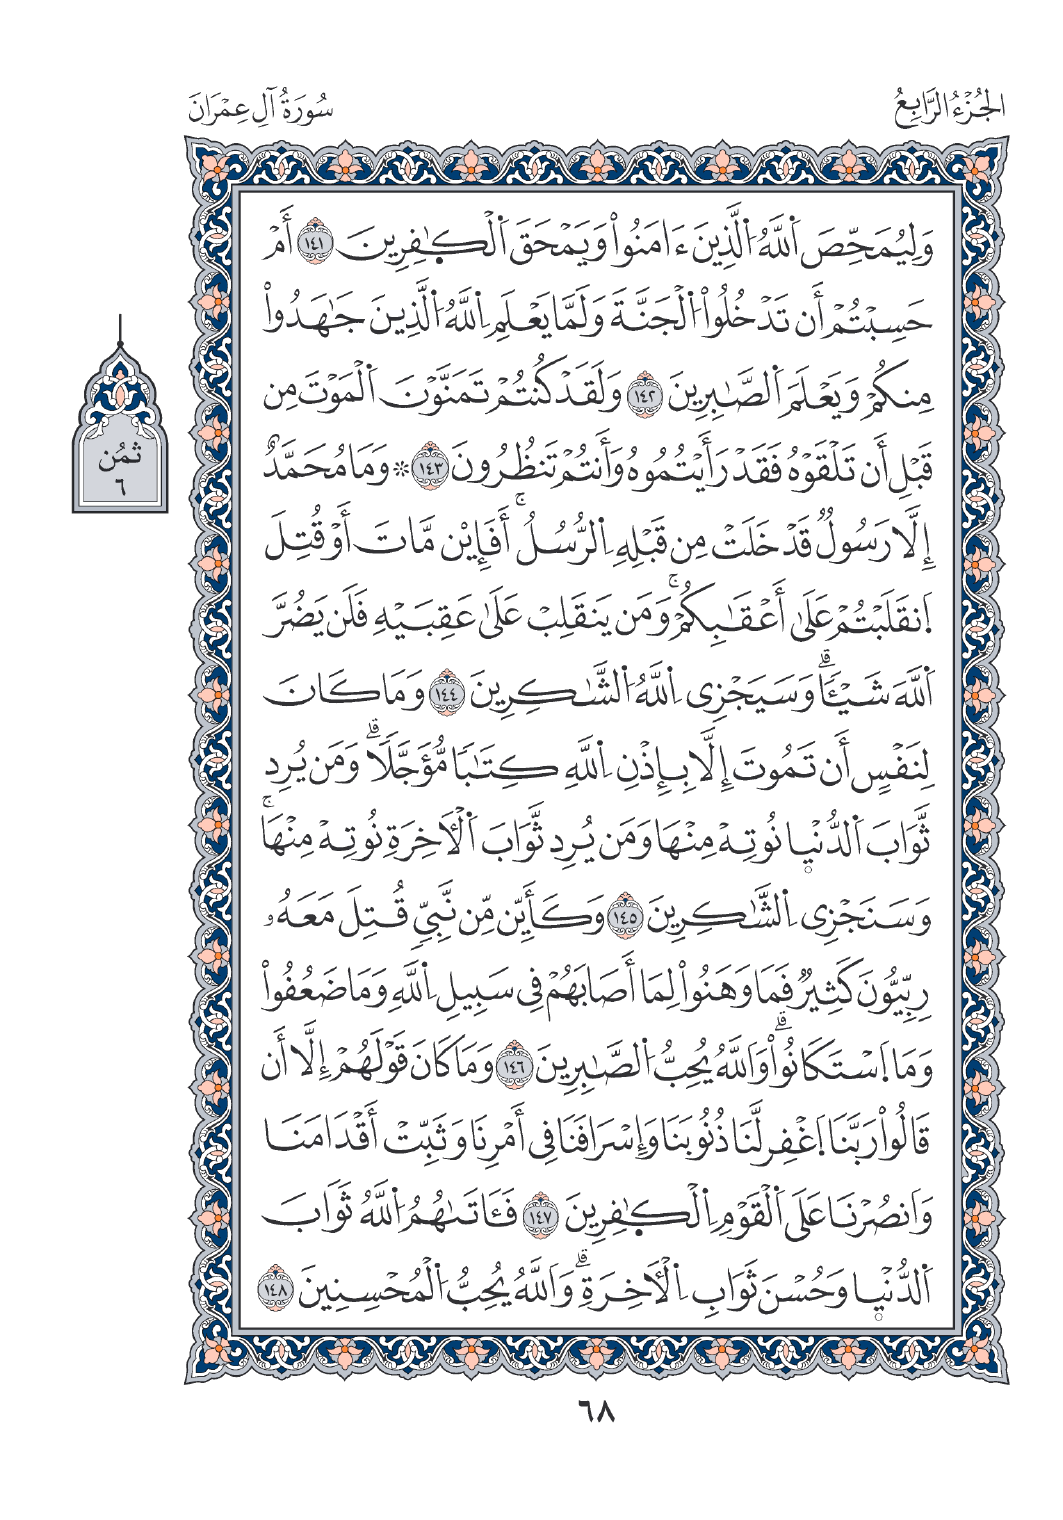 الجُزْءُ الرَّابِعُ
سُورَةُ آلِ عِمْرَانَ
وَلِيُمَحِّصَ اَ۬للَّهُ اُ۬لذِينَ ءَامَنُواْ وَيَمْحَقَ اَ۬لْكٰ۪فِرِينَ ١٤١ أَمْ
حَسِبْتُمْ أَن تَدْخُلُواْ اُ۬لْجَنَّةَ وَلَمَّا يَعْلَمِ اِ۬للَّهُ اُ۬لذِينَ جَٰهَدُواْ
مِنكُمْ وَيَعْلَمَ اَ۬لصَّٰبِرِينَ ١٤٢ وَلَقَدْ كُنتُمْ تَمَنَّوْنَ اَ۬لْمَوْتَ مِن
قَبْلِ أَن تَلْقَوْهُ فَقَدْ رَأَيْتُمُوهُ وَأَنتُمْ تَنظُرُونَ ١٤٣ ۞ وَمَا مُحَمَّدٌ
ثمُن
٦
إِلَّا رَسُولٞ قَدْ خَلَتْ مِن قَبْلِهِ اِ۬لرُّسُلُۚ أَفَإِيْن مَّاتَ أَوْ قُتِلَ
اَ۪نقَلَبْتُمْ عَلَىٰ أَعْقَٰبِكُمْۚ وَمَن يَنقَلِبْ عَلَىٰ عَقِبَيْهِ فَلَن يَضُرَّ
اَ۬للَّهَ شَيْـٔٗاۗ وَسَيَجْزِي اِ۬للَّهُ اُ۬لشَّٰكِرِينَ ١٤٤ وَمَا كَانَ
لِنَفْسٍ أَن تَمُوتَ إِلَّا بِإِذْنِ اِ۬للَّهِ كِتَٰبٗا مُّؤَجَّلٗاۗ وَمَن يُرِد
ثَّوَابَ اَ۬لدُّنْي۪ا نُوتِهْ مِنْهَا وَمَن يُرِد ثَّوَابَ اَ۬لْأٓخِرَةِ نُوتِهْ مِنْهَاۚ
وَسَنَجْزِي اِ۬لشَّٰكِرِينَ ١٤٥ وَكَأَيِّن مِّن نَّبِيّٖ قُتِلَ مَعَهُۥ
رِبِّيُّونَ كَثِيرٞ فَمَا وَهَنُواْ لِمَا أَصَابَهُمْ فِي سَبِيلِ اِ۬للَّهِ وَمَا ضَعُفُواْ
وَمَا اَ۪سْتَكَانُواْۗ وَاللَّهُ يُحِبُّ اُ۬لصَّٰبِرِينَ ١٤٦ وَمَا كَانَ قَوْلَهُمْ إِلَّا أَن
قَالُواْ رَبَّنَا اَ۪غْفِر لَّنَا ذُنُوبَنَا وَإِسْرَافَنَا فِي أَمْرِنَا وَثَبِّتْ أَقْدَامَنَا
وَانصُرْنَا عَلَى اَ۬لْقَوْمِ اِ۬لْكٰ۪فِرِينَ ١٤٧ فَـَٔاتَىٰهُمُ اُ۬للَّهُ ثَوَابَ
اَ۬لدُّنْي۪ا وَحُسْنَ ثَوَابِ اِ۬لْأٓخِرَةِۗ وَاللَّهُ يُحِبُّ اُ۬لْمُحْسِنِينَ ١٤٨
٦٨